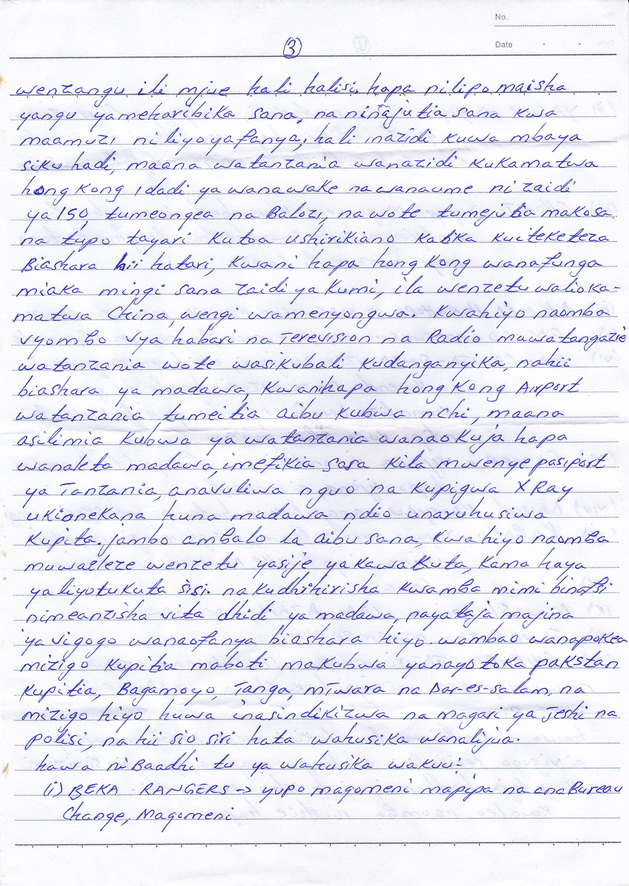 No.
Date
3
wenzangu ili mjue hali halisi, hapa nilipo maisha
yangu yameharibika sana, na ninajutia sana kwa
maamuzi niliyoyafanya, hali inazidi kuwa mbaya
siku hadi, maana watanzania wanazidi kukamatwa
hong Kong idadi ya wanawake na wanaume ni zaidi
ya 150, tumeongea na Balozi, na wote tumejutia makosa
na tupo tayari kutoa ushirikiano katika kuiteketeza
Biashara hii hatari, Kwani hapa hong Kong wanafunga
miaka mingi sana zaidi ya Kumi, ila wenzetu walioka-
matwa China, wengi wamenyongwa. Kwahiyo naomba
vyombo vya habari na Terevision na Radio muwatangazie
watanzania wote wasikubali kudanganyika, nahii
biashara ya madawa, Kwanihapa hong Kong Airport
watanzania tumeitia aibu kubwa nchi, maana
asilimia kubwa ya watanzania wanaokuja hapa
wanaleta madawa, imefikia sasa kila mwenye pasiport
ya Tanzania, anavuliwa nguo na kupigwa X Ray
ukionekana huna madawa ndio unaruhusiwa
kupita. jambo ambalo la aibu sana, kwahiyo naomba
muwaeleze wenzetu yasije yakawakuta, kama haya
yaliyotukuta sisi. na kudhihirisha kwamba mimi binafsi
nimeanzisha vita dhidi ya madawa, nayataja majina
ya vigogo wanaofanya biashara hiyo. wambao wanapokea
mizigo kupitia maboti makubwa yanayotoka pakstan
kupitia, Bagamoyo, Tanga, mtwara na Dar-es-salam, na
mizigo hiyo huwa inasindikizwa na magari ya jeshi na
polisi, na hii sio siri hata wahusika wanalijua.
hawa ni Baadhi tu ya wahusika wakuu:
(i) BEKA RANGERS -> yupo magomeni mapipa na ana Bureau
Change, Magomeni